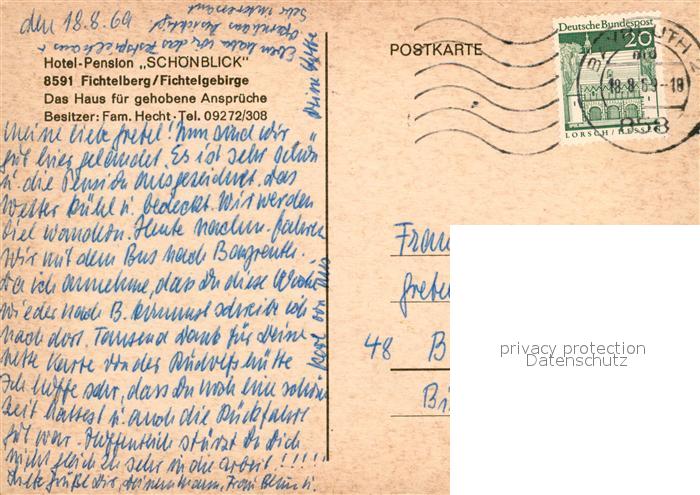 den 18.8.69
Eben haben wir das Festspielhaus u.
Opernhaus besichtigt
Sehr interessant
Hotel-Pension „SCHÖNBLICK"
8591 Fichtelberg/Fichtelgebirge
Das Haus für gehobene Ansprüche
Besitzer: Fam. Hecht · Tel. 09272/308
Meine liebe Gretel! Nun sind wir
gut hier gelandet. Es ist sehr schön
u. die Pension ausgezeichnet, das
Wetter kühl u. bedeckt. Wir werden
viel wandern. Heute nachm. fahren
wir mit dem Bus nach Bayreuth.
Da ich annehme, dass du diese Woche
wieder nach B. kommst schreibe ich
nach dort. Tausend Dank für Deine
nette Karte von der Rudolfshütte
Ich hoffe sehr, dass Du noch eine schöne
Zeit hattest u. auch die Rückfahrt
gut war. Hoffentlich stürzt Du Dich
nicht gleich zu sehr in die Arbeit!!!!!
Liebe Grüße Dir, Deinem Mann, Frau
von
Deine
POSTKARTE
Deutsche Bundespost
20
LORSCH/HESSEN
BAYREUTH 2
18.8.69-18
858
Frau
Gretel
48 B
Bi
privacy protection
Datenschutz